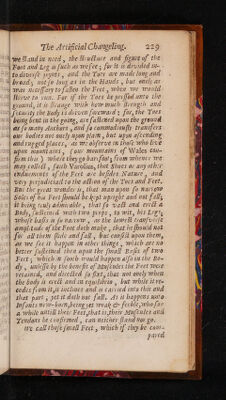 The Artificial Changeling. 229
we stand in need, the structure and figure of the
Foot and Leg is such as we see; for it is divided in-
to diverse joynts, and the Toes are made long and
broad, not so long as in the Hands, but onely as
was necessary to fasten the Feet, when we would
strive to run. For if the Toes be pressed into the
ground, it is strange with how much strength and
security the Body is driven forward; for, the Toes
being bent in the going, are fastened upon the ground
as so many Anchors, and so commodiously transfers
our bodies not onely upon plain, but upon ascending
and ragged places, as we observe in those who live
upon mountains, (our mountaines of Wales con-
firm this) where they go barefoot; from whence we
may collect, saith Varolius, that Shoes or any other
enducements of the Feet are besides Nature, and
very prejudiciall to the action of the Toes and Feet.
But the great wonder is, that man upon so narrow
Soles of his Feet should be kept upright and not fall,
it being truly admirable, that so vast and erect a
Body, sustained with two props, to wit, his Legs,
whose basis is so narrow, as the lowest transverse
ampli­tude of the Foot doth make, that he should not
for all them slide and fall, but consist upon them,
as we see it happen in other things, which are no
better sustained then upon the small Basis of two
Feet; which in sooth would happen also in the Bo-
dy, unlesse by the benefit of Muscules the Feet were
retained, and directed so fast, that not onely when
the body is erect and in equilibrio, but while it re-
cedes from it, it inclines and is carried into this and
that part, yet it doth not fall. As it happens unto
Infants new-born, being yet weak & feeble, who for
a while untill their Feet, that is, their Muscules and
Tendons be confirmed, can neither stand nor go.
We call those small Feet, which if they be com-
pared